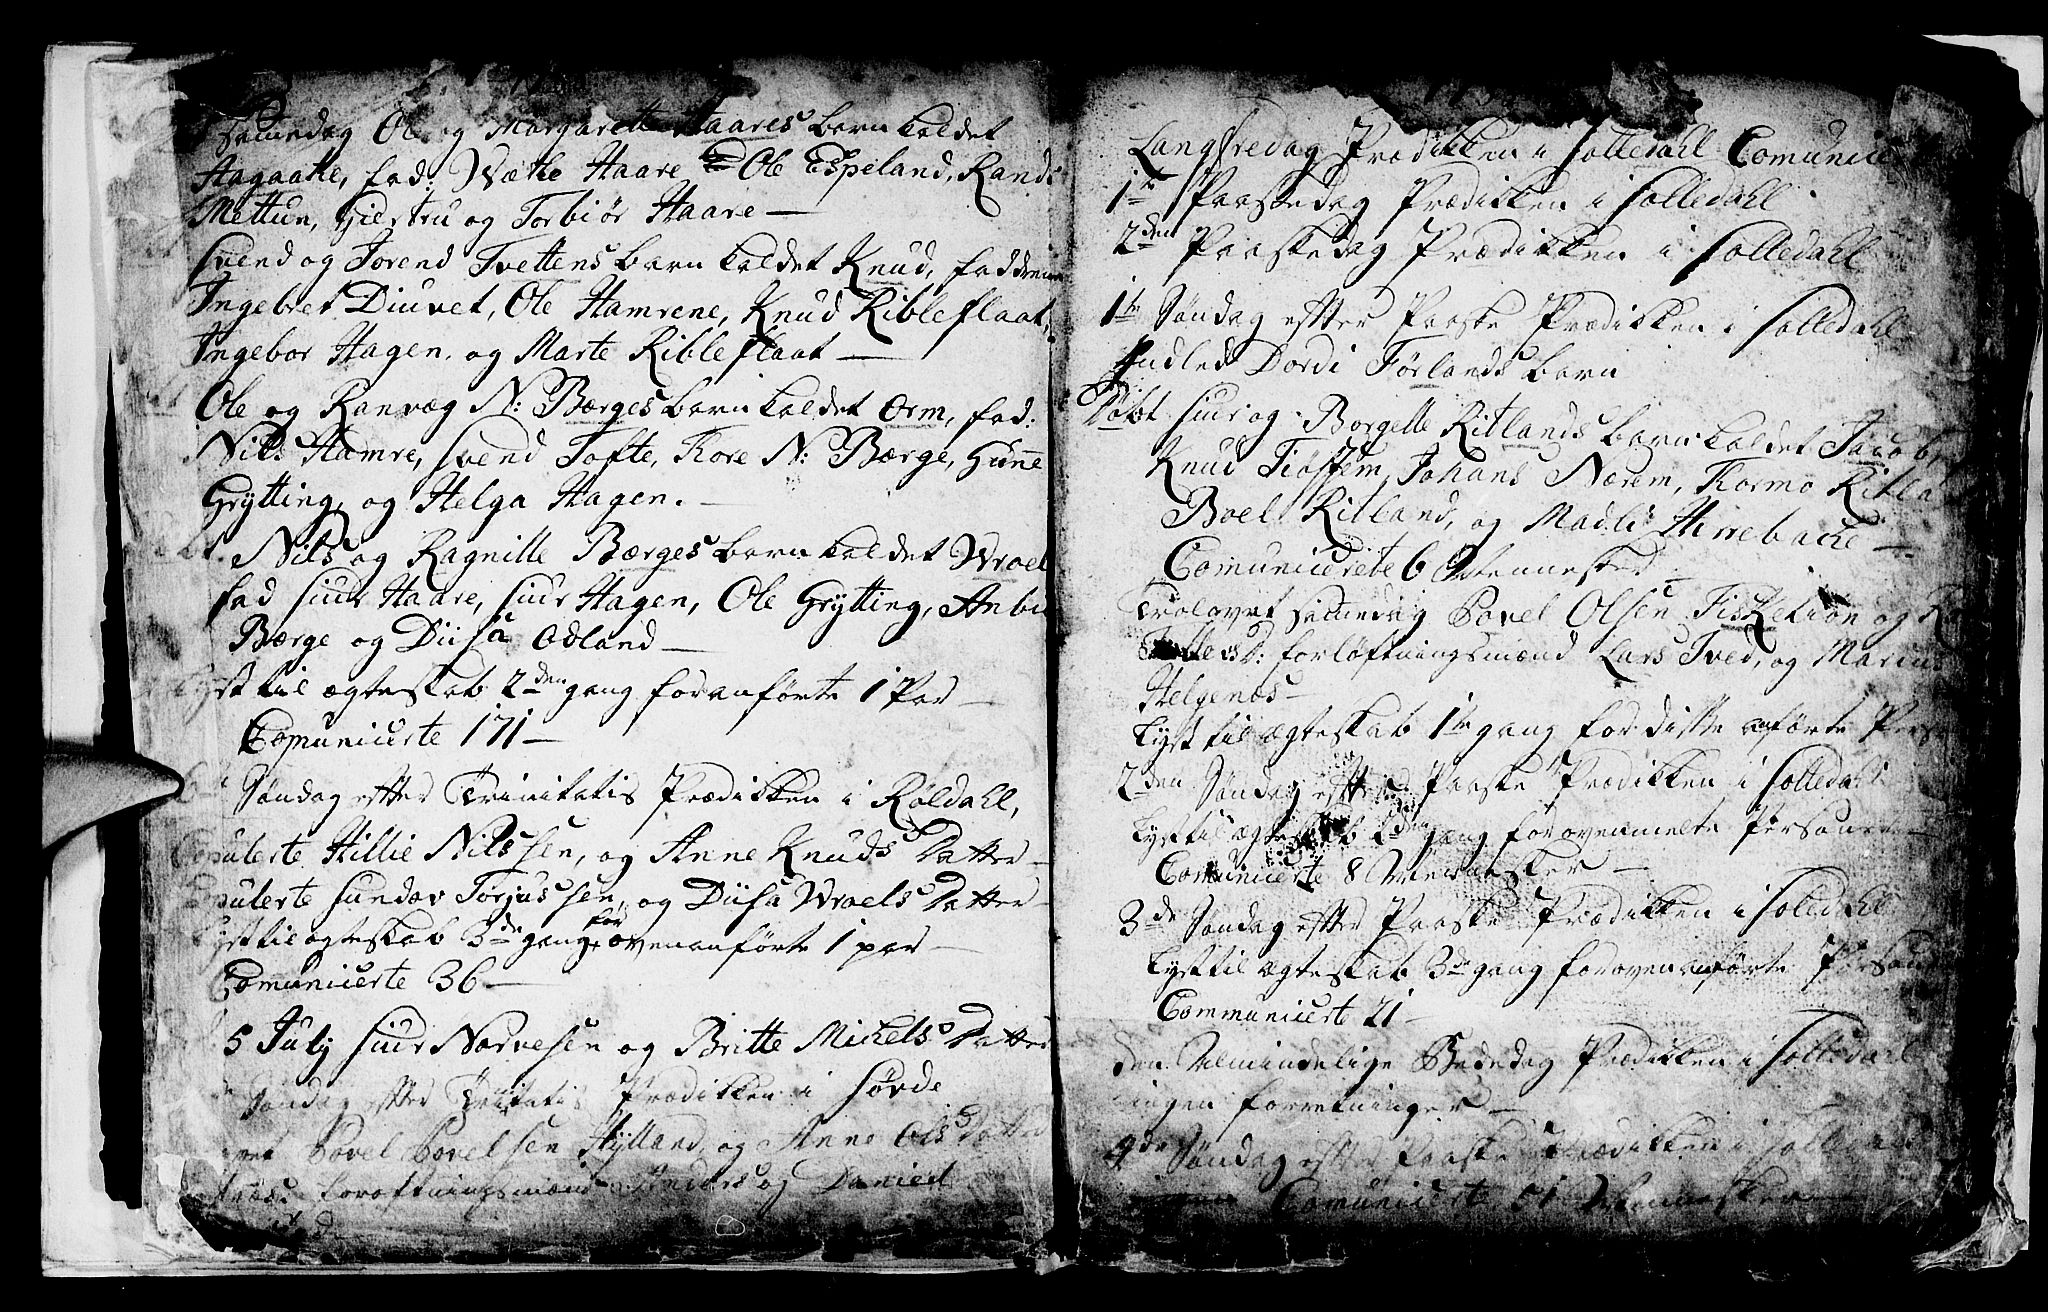 samedag Ole og Margarette Haares barn kaldet
Aagaatte, fad: Wætle Haare Ole Espeland, Rands
Mettun, Giertru og Torbiør Haare —
Suend og Jorend Tvettens barn kaldet Knud, faddrene
Ingebret Diuvet, Ole Hamrene, Knud Ribleflaat,
Ingebor Hagen, og Marte Ribleflaat —
Ole og Ranvæg N: Bærges barn kaldet Orm, fad:
Nils Hamre, Svend Tofte, Tore N: Bærge, Gunne
Grytting, og Helga Hagen. —
Nils og Ragnille Bærges barn kaldet Wroel
fad Siur Haare, Siur Hagen, Ole Grytting, Anbi
Bærge og Diisa Odland —
Lyst til ægteskab 2den gang foranførte 1 Par —
Comunicerte 171 —
Søndag efter Trinitatis Prædikken i Røldahl,
Copulerte Hillie Nilssen, og Anne Knuds Datter —
Copulerte Sundov Torjussen, og Diisa Wroels Datter —
Lyst til ægteskab 3de gang, for ovenanførte 1 par —
Comunicerte 36 —
5 July Siur Narvesen og Britte Mickels Datter
Søndag efter Trinitatis Prædikken i Sørde
Povel Povelsen Hylland, og Anne Ols Datter
forloftningsmænd Anders og Daniel
Langfredag Prædikken i Solledahl Comunicerte
1te Paaskedag Prædikken i Solledahl
2den Paaskedag Prædikken i Solledahl
1te Søndag efter Paaske Prædikken i Solledahl
Indled Dordi Førlands barn
Døbt Siur og Borgelle Ritlands barn kaldet Jacob
Knud Tiøstem, Johans Nærem, Tormo Ritla
Boel Ritland, og Madli Hirrebache —
Comunicerte 6 Mennesker —
Trolovet samedag Povel Olsen Fisketion og
D: forløftningsmænd Lars Tved, og Marcus
Helgenæs —
Lyst til ægteskab 1te gang for disse anførte Perso
2den Søndag efter Paaske Prædikken i Solledahl
Lyst til ægteskab 2den gang for ovenmelte Personer —
Comunicerte 8 Mennesker —
3de Søndag efter Paaske Prædikken i Solledahl
Lyst til ægteskab 3de gang for ovenanførte Persone
Communicerte 21 —
den Almindelige Bededag Prædikken i Solledahl
ingen forretninger —
4de Søndag efter Paaske Prædikken i Solledahl
Comunicerte 51 Mennesker —